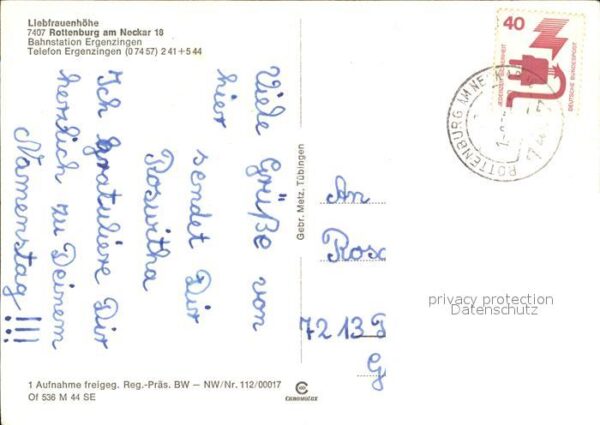 Liebfrauenhöhe
7407 Rottenburg am Neckar 18
Bahnstation Ergenzingen
Telefon Ergenzingen (0 74 57) 2 41 + 5 44
Viele Grüße von
hier sendet Dir
Roswitha
Ich gratuliere Dir
herzlich zu Deinem
Namenstag!!!
Gebr. Metz, Tübingen
40
JEDERZEIT SICHERHEIT
DEUTSCHE BUNDESPOST
ROTTENBURG AM NE
An
Rosa
7213
privacy protection
Datenschutz
1 Aufnahme freigeg. Reg.-Präs. BW – NW/Nr. 112/00017
Of 536 M 44 SE
CHROMOLUX